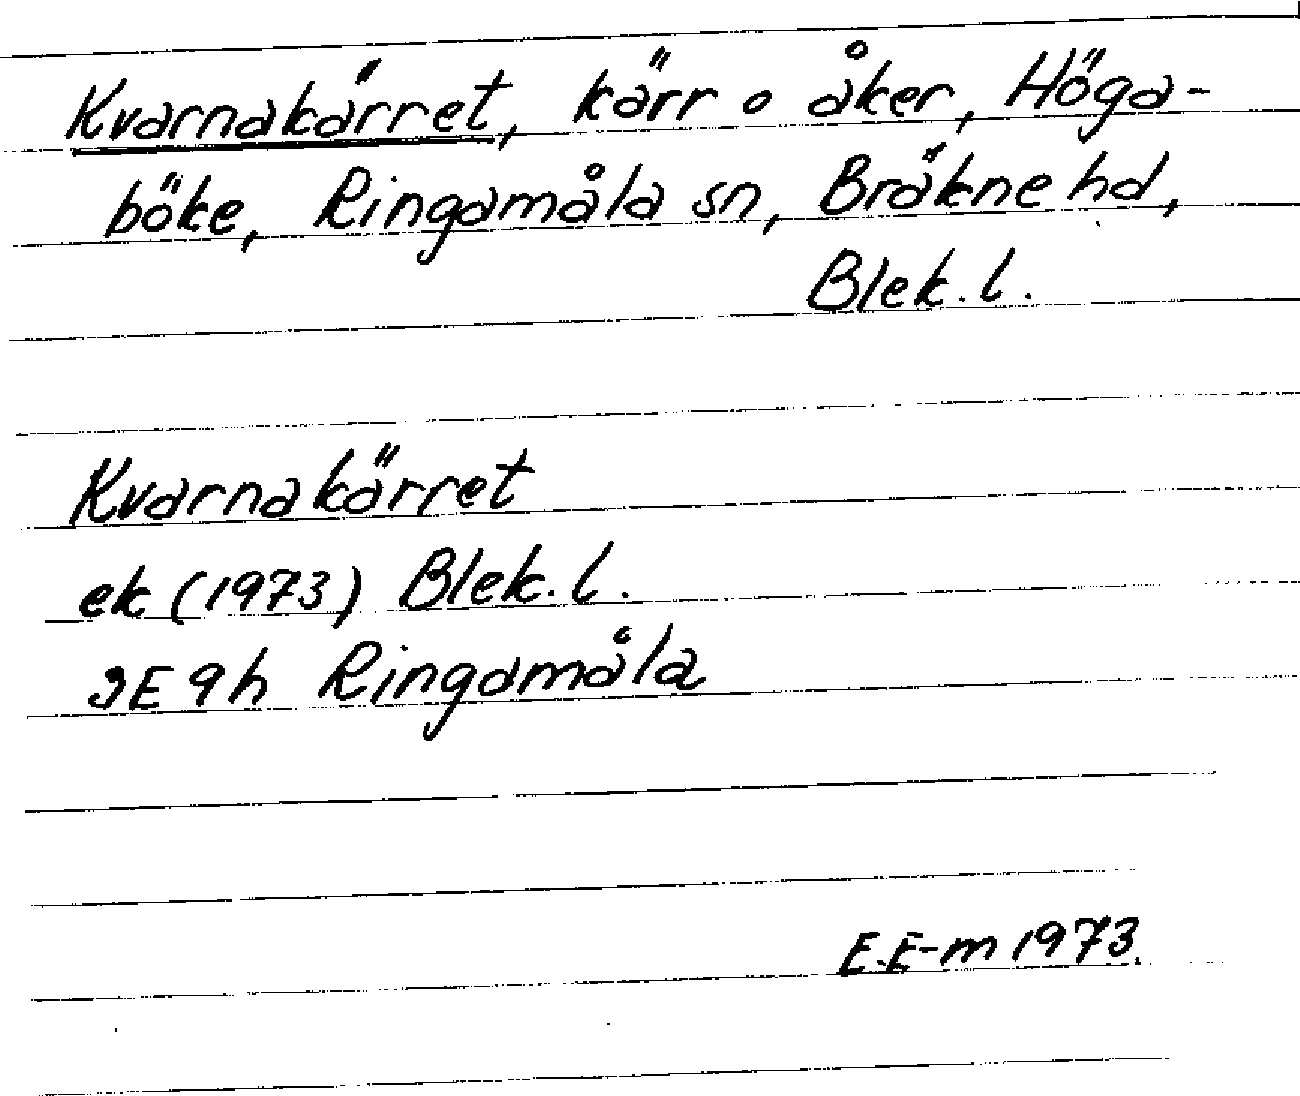 Kvarnakärret, kärr o åker, Höga-
böke, Ringamåla sn, Bräkne hd,
Blek. l.
Kvarnakärret
ek (1973) Blek. l.
3E 9h Ringamåla
E.E-m 1973.